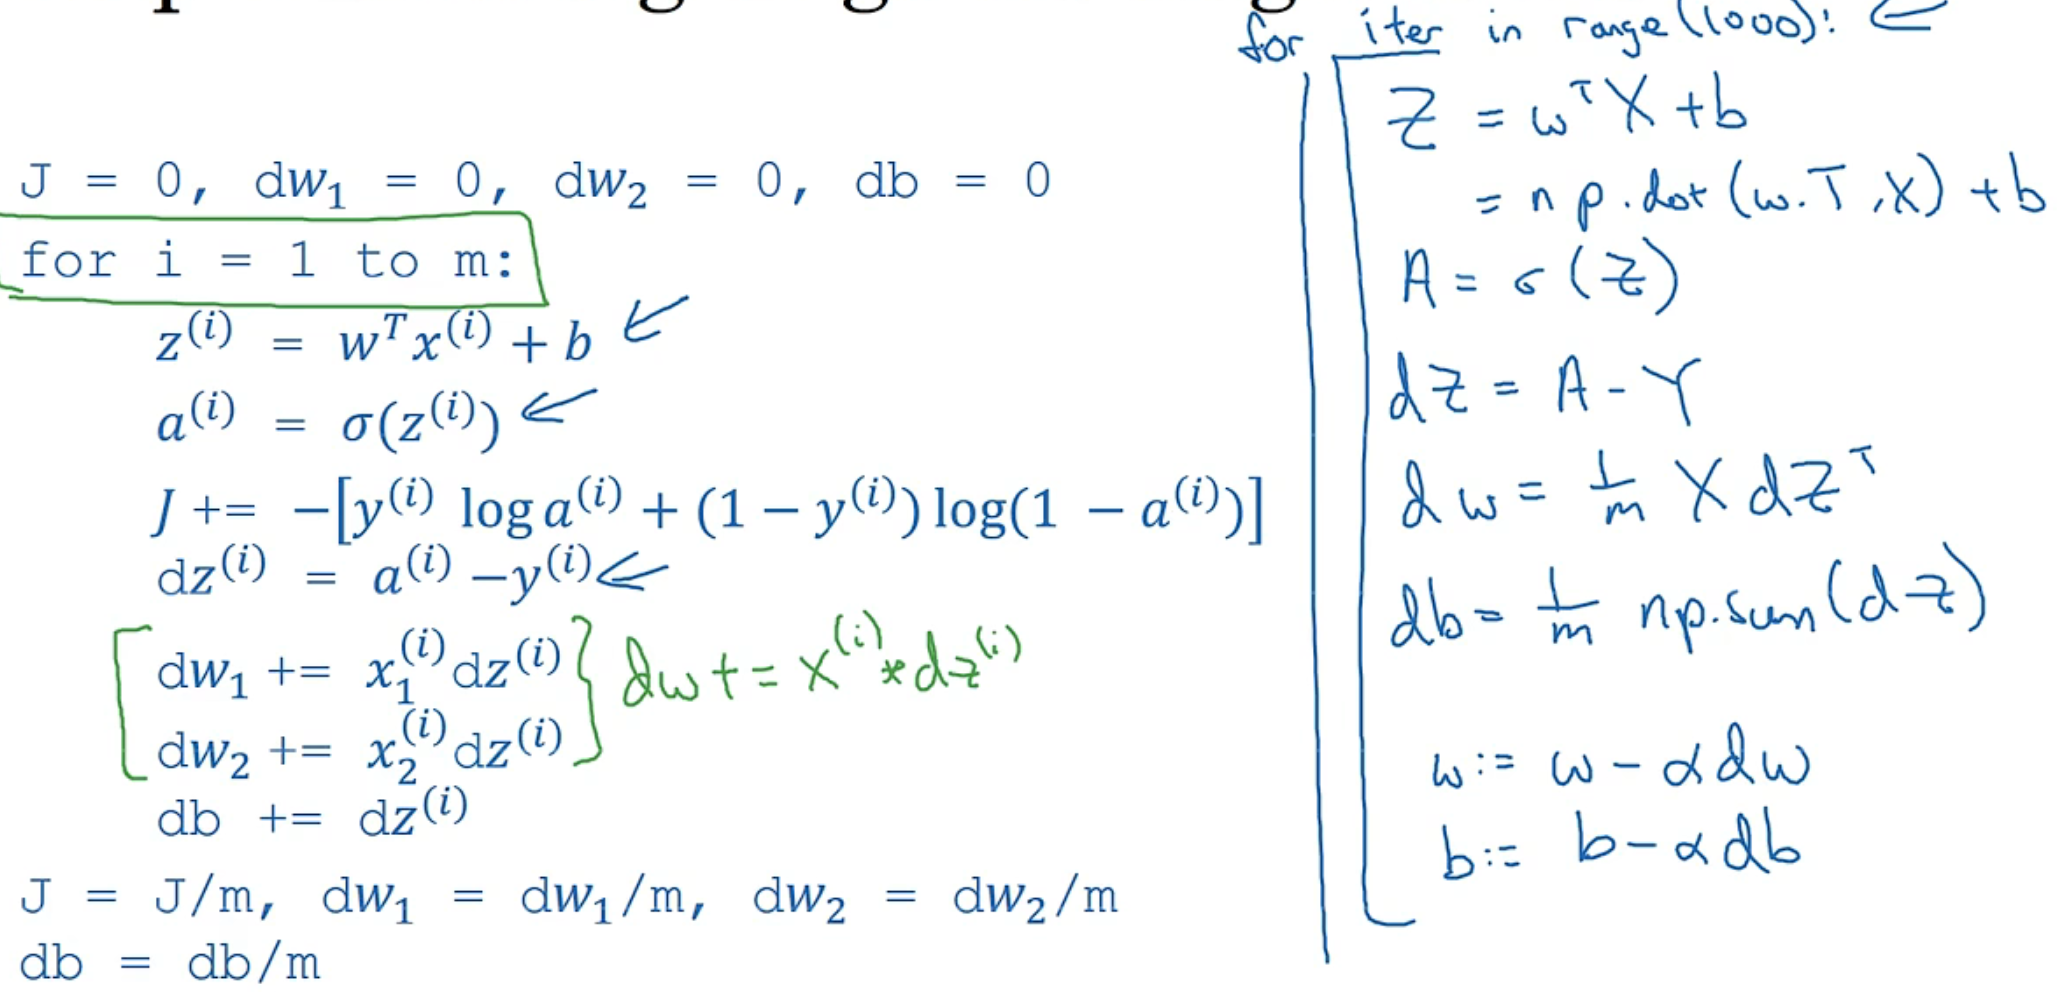 J = 0, dw₁ = 0, dw₂ = 0, db = 0
for i = 1 to m:
z⁽ⁱ⁾ = wᵀx⁽ⁱ⁾ + b
a⁽ⁱ⁾ = σ(z⁽ⁱ⁾)
J += −[y⁽ⁱ⁾ log a⁽ⁱ⁾ + (1 − y⁽ⁱ⁾) log(1 − a⁽ⁱ⁾)]
dz⁽ⁱ⁾ = a⁽ⁱ⁾ −y⁽ⁱ⁾
dw₁ += x₁⁽ⁱ⁾dz⁽ⁱ⁾
dw₂ += x₂⁽ⁱ⁾dz⁽ⁱ⁾
dw += x⁽ⁱ⁾ * dz⁽ⁱ⁾
db += dz⁽ⁱ⁾
J = J/m, dw₁ = dw₁/m, dw₂ = dw₂/m
db = db/m
for iter in range(1000):
Z = wᵀX + b
= np.dot(w.T,X) + b
A = σ(Z)
dZ = A - Y
dw = 1/m X dZᵀ
db = 1/m np.sum(dZ)
w := w - αdw
b := b - αdb